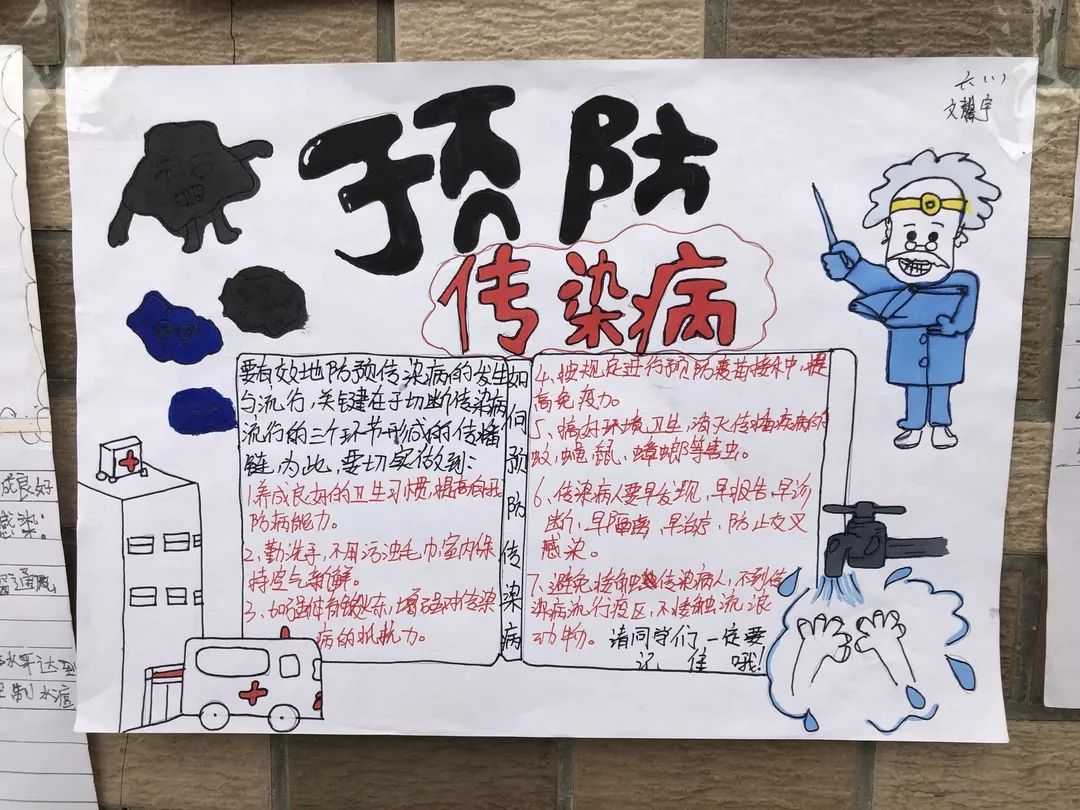 文馨宇
预防
传染病
要有效地防预传染病的发生
与流行,关键在于切断传染病
流行的三个环节形成的传播
链,为此,要切实做到:
1.养成良好的卫生习惯,提高自我
防病能力。
2、勤洗手,不用污浊毛巾室内保
持空气新鲜。
3、加强体育锻炼,增强对传染
病的抵抗力。
如何预防传染病
4、按规定进行预防疫苗接种,提
高免疫力。
5、搞好环境卫生,消灭传播疾病的
蚊,蝇,鼠、蟑螂等害虫。
6、传染病人要早发现,早报告,早诊
断,早隔离,早治疗,防止交叉
感染。
7、避免接触传染病人,不到传
染病流行疫区,不接触流浪
动物。请同学们一定要
记住哦!
成良好
感染:
通风
水平达
制水痘